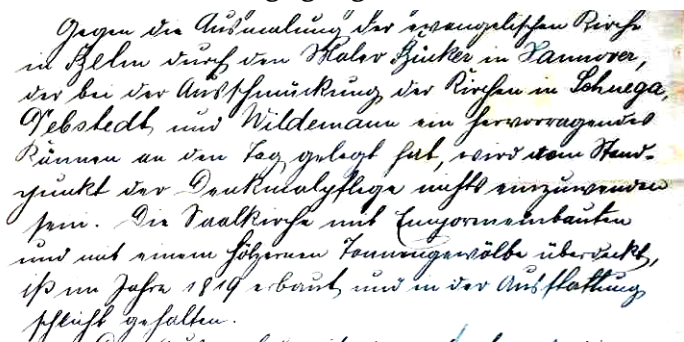 Gegen die Ausmalung der evangelischen Kirche
in Belm durch den Maler Bücker in Hannover,
der bei der Ausschmückung der Kirchen in Schnega,
Debstedt und Wildemann ein hervorragendes
Können an den Tag gelegt hat, wird vom Stand-
punkt der Denkmalpflege nichts einzuwenden
sein. Die Saalkirche mit Emporeneinbauten
und mit einem hölzernen Tonnengewölbe überdeckt,
ist im Jahre 1819 erbaut und in der Ausstattung
schlicht gehalten.